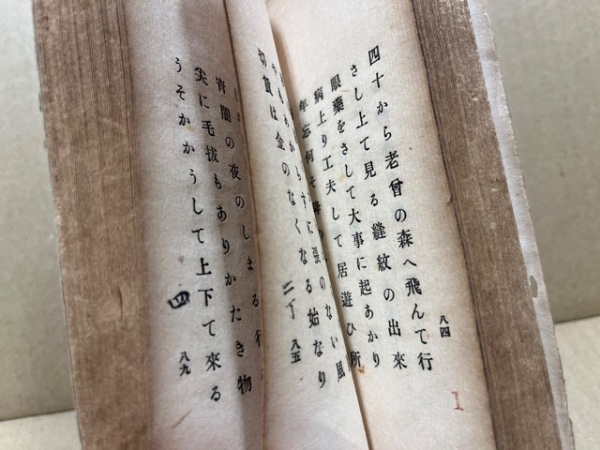 四十から老曾の森へ飛んて行
さし上て見る縫紋の出來
眼藥をさして大事に起あかり
病上り工夫して居遊ひ所
年忘何そ
八四
I
からすに張のない風
は金のなくなる始なり
二丁
八五
宵闇の夜のしまる行
尖に毛拔もありかたき物
うそかかうして上下て來る
四
八九